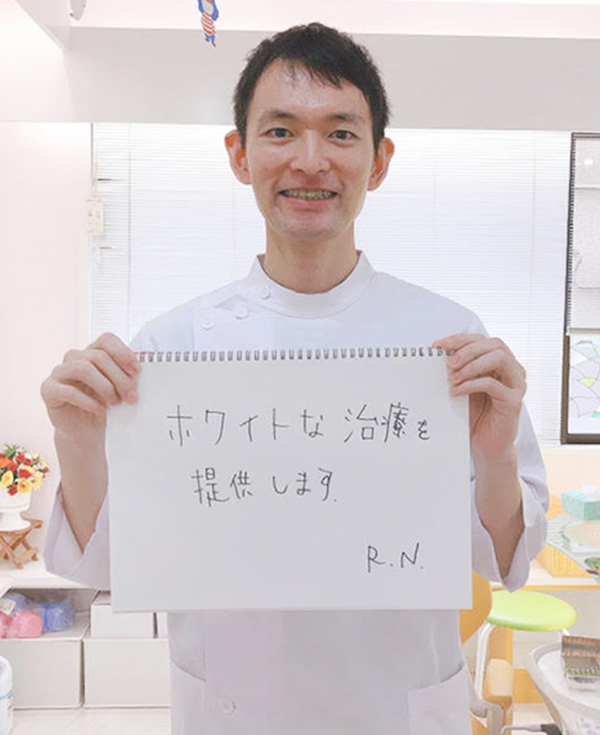 ホワイトな治療を
提供します.
R.N.